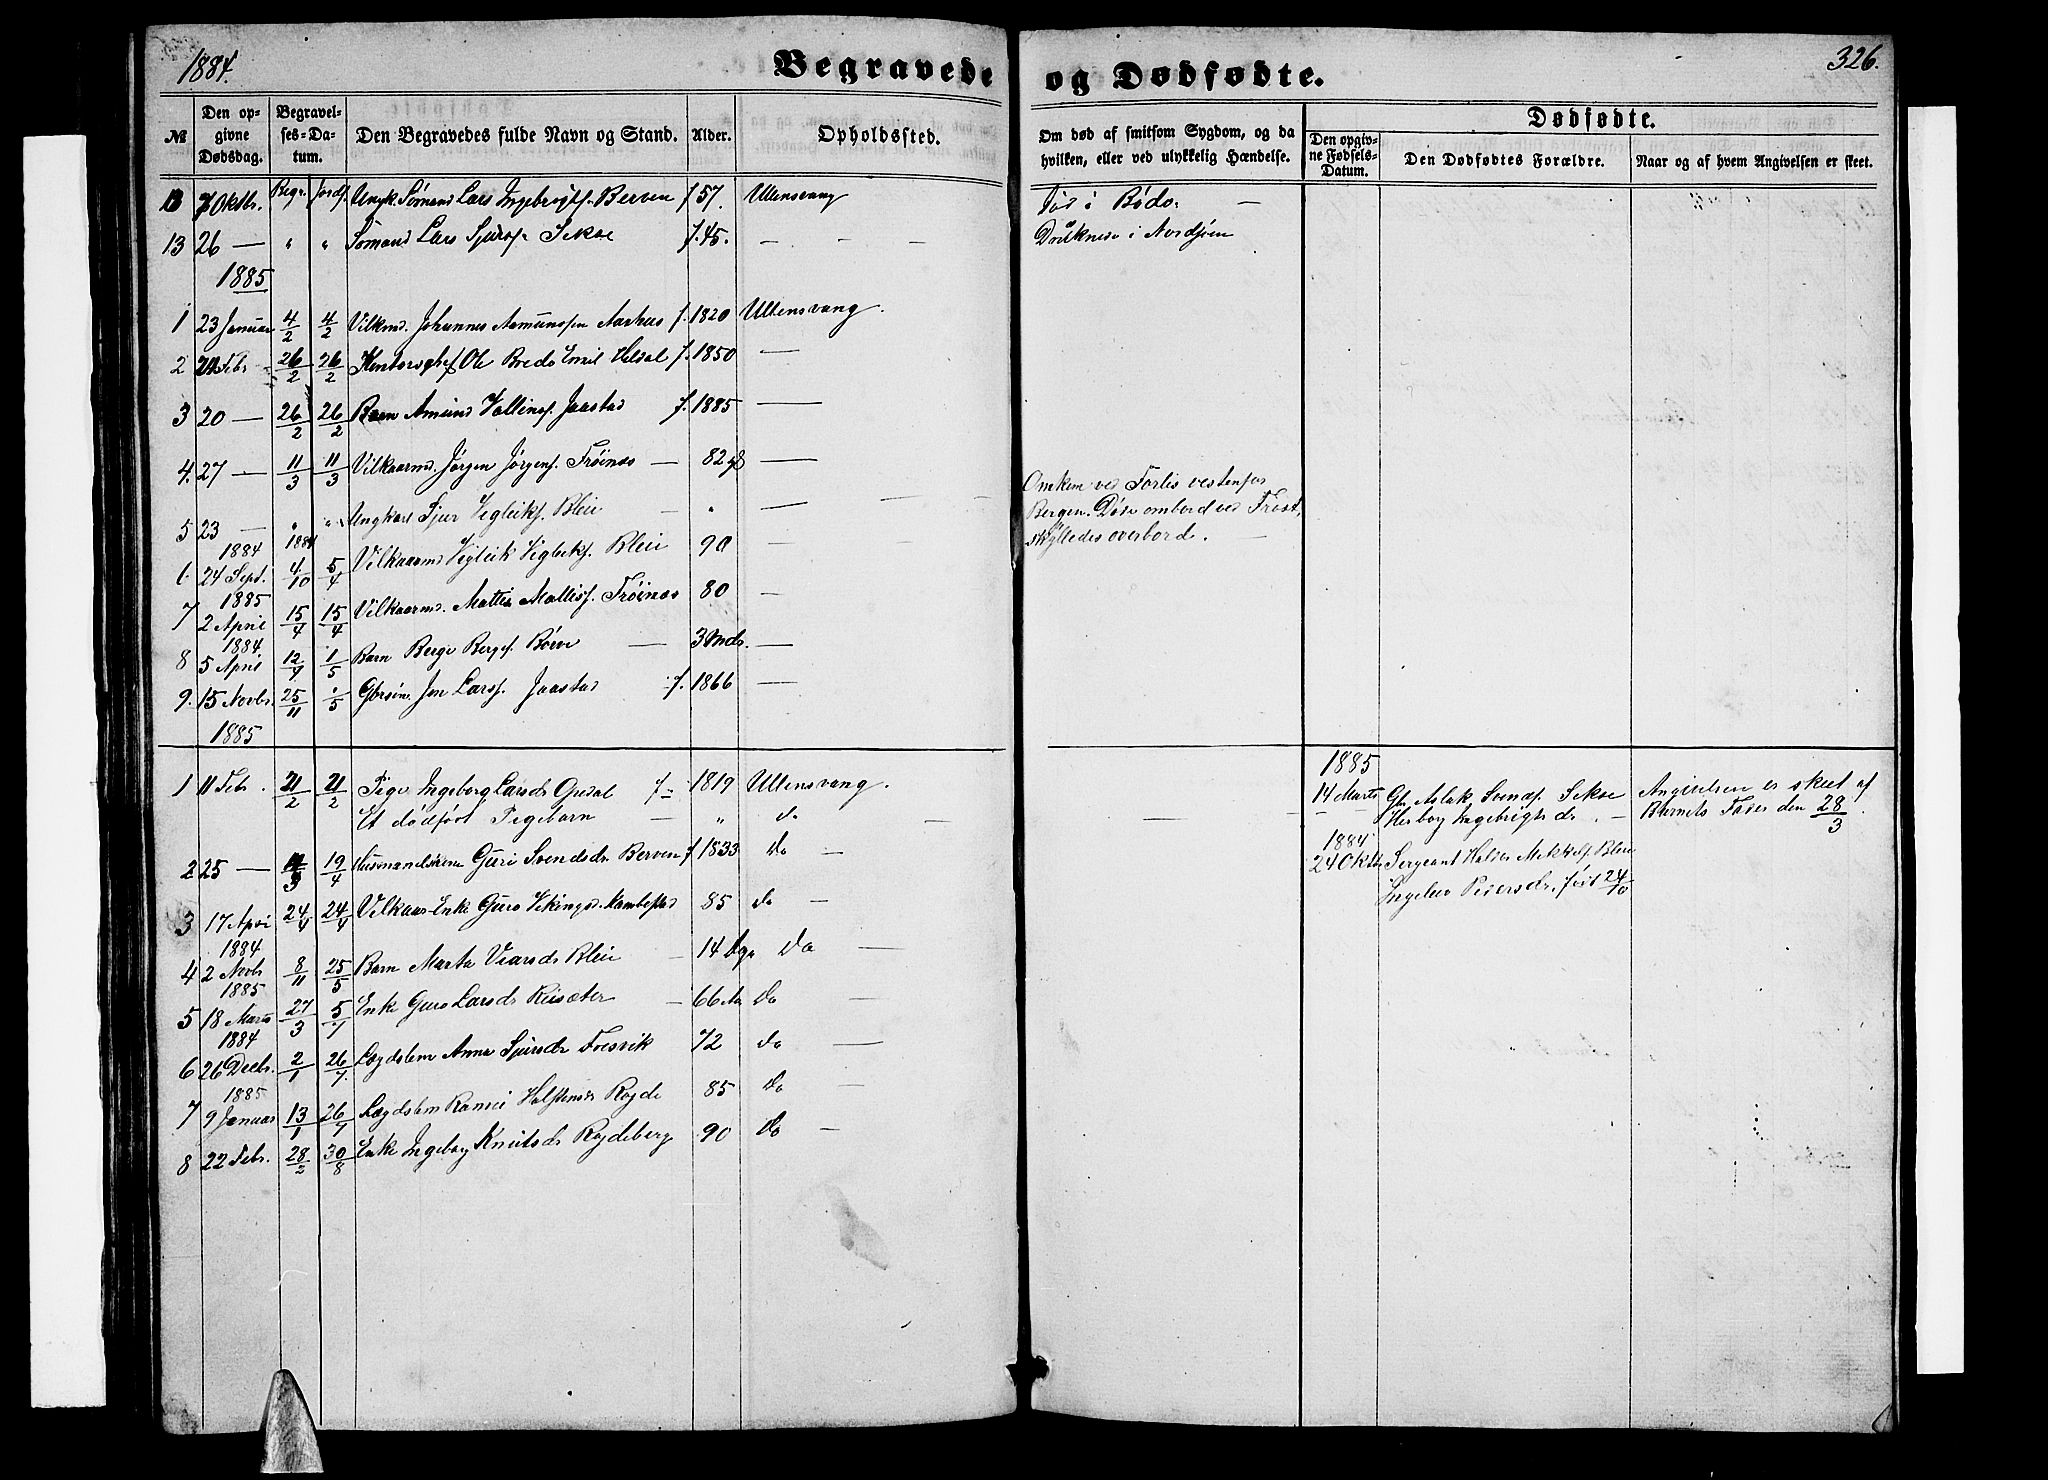 1884.
Begravede og Dødfødte.
326.
№
Den opgivne Dødsdag.
Begravelses-Datum.
Den Begravedes fulde Navn og Stand.
Alder.
Opholdssted.
Om død af smitsom Sygdom, og da hvilken, eller ved ulykkelig Hændelse.
Dødfødte.
Den opgivne Fødsels-Datum.
Den Dødfødtes Forældre.
Naar og af hvem Angivelsen er skeet.
Begr. Jordf.
7 Oktbr. Ungk. Sømand Lars Ingebrigts. Berven f 57. Ullensvang Død i Bodø. —
13 26 — " " Sømand Lars Sjurs. Sekse f. 45. — — — Druknede i Nordsjøen
1885
1 23 Januar 4/2 4/2 Vilkmd. Johannes Aamundsen Aarhus f. 1820 Ullensvang.
2 Febr 26/2 26/2 Ole Bredo Emil f. 1850 —
3 20 — 26/2 26/2 Barn Amund Jaastad f. 1885 —
4. 27 — 11/3 11/3 Vilkaarmd. Jørgen Jørgens. Frøinæs — 82 —
5 23 — " " Ungkarl Sjur Vigleiks. Bleie — " — — —
Omkom ved Forlis vestenfor
Bergen. Døde ombord ved Frost,
skylledes overbord. —
1884 1884
6. 24 Sept. 4/10 5/4 Vilkaarmd Vigleik Vigleiks. Bleie 90 —
1885
7 2 April 15/4 15/4 Vilkaarmd. Mattis Mattiss. Frøinæs 80 —
1884.
8 5 April 12/4 1/5 Barn Berge Bergs. Børve — 3 Mdr. —
9. 15 Novbr. 25/11 /5 Gbrsøn Jon Larss. Jaastad f. 1866 —
1885
1 11 Febr. 21/2 21/2 Pige Ingeborg Larsdr f. 1819 Ullensvang.
Et dødfødt Pigebarn — " do — —
1885
14 Marts Gbr. Aslak Svends. Sekse Angivelsen er skeet af
Herborg Ingebrigtsdr. — Barnets Fader den 28/3.
2 25 — /3 19/4 Husmandskone Guri Svendsdr. Berven f 1833 do —
1884
24 Oktbr Sergeant Mikkels. Bleie
Pedersdr. født 24/10
3 17 Apri 24/4 24/4 Vilkaar-Enke Guro Vikingsd. Kambestad 85 do —
1884
4 2 Novbr 8/11 25/5 Barn Marta Bleie — 14 Dge do —
1885
5 18 Marts 27/3 5/7 Enke Guro Larsdr — 66 Aar do —
1884
6 26 Decbr. 2/1 26/7. Lægdslem Anna Sjursdr Fresvik 72 do —
1885
7 9 Januar 13/1 26/7 Lægdslem Halstensdr 85 do —
8 22 Febr. 28/2 30/8 Enke Ingeborg Knutsdr 90 do —